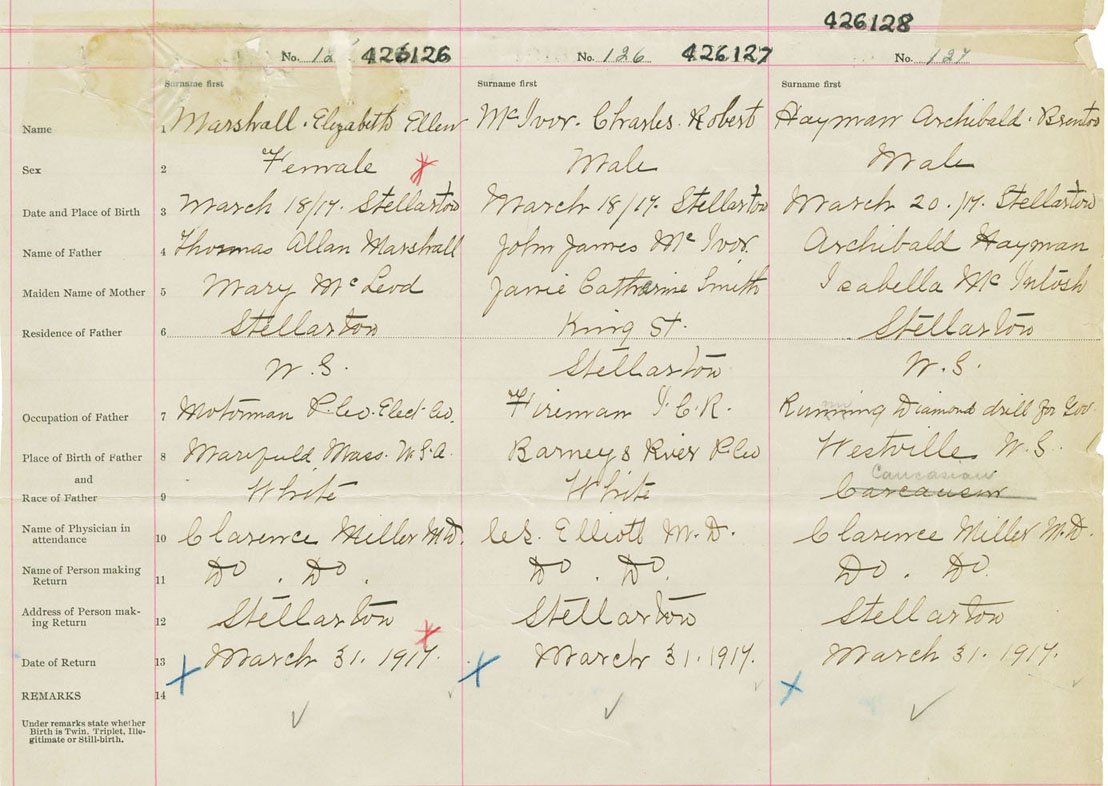 426128
No. 12 426126 No. 126 426127 No. 127
Surname first Surname first Surname first
Name 1 Marshall. Elizabeth Ellen McIvor. Charles. Robert Hayman Archibald. Brenton
Sex 2 Female Male Male
Date and Place of Birth 3 March 18/17. Stellarton March 18/17. Stellarton March 20./17. Stellarton
Name of Father 4 Thomas Allan Marshall John James McIvor Archibald Hayman
Maiden Name of Mother 5 Mary McLeod Janie Catharine Smith Isabella McIntosh
Residence of Father 6 Stellarton King St. Stellarton
N.S. Stellarton N.S.
Occupation of Father 7 Motorman P.Co. Elect. Co. Fireman I.C.R. Running Diamond drill for Gov.
Place of Birth of Father 8 Mass. U.S.A. Barneys River P.Co Westville N.S.
and Caucasian
Race of Father 9 White White
Name of Physician in
attendance 10 Clarence Miller M.D. C.S. Elliott M.D. Clarence Miller M.D.
Name of Person making
Return 11 Do. Do. Do. Do. Do. Do.
Address of Person mak-
ing Return 12 Stellarton Stellarton Stellarton
Date of Return 13 March 31. 1917. March 31. 1917. March 31. 1917.
REMARKS 14
Under remarks state whether
Birth is Twin, Triplet, Ille-
gitimate or Still-birth.